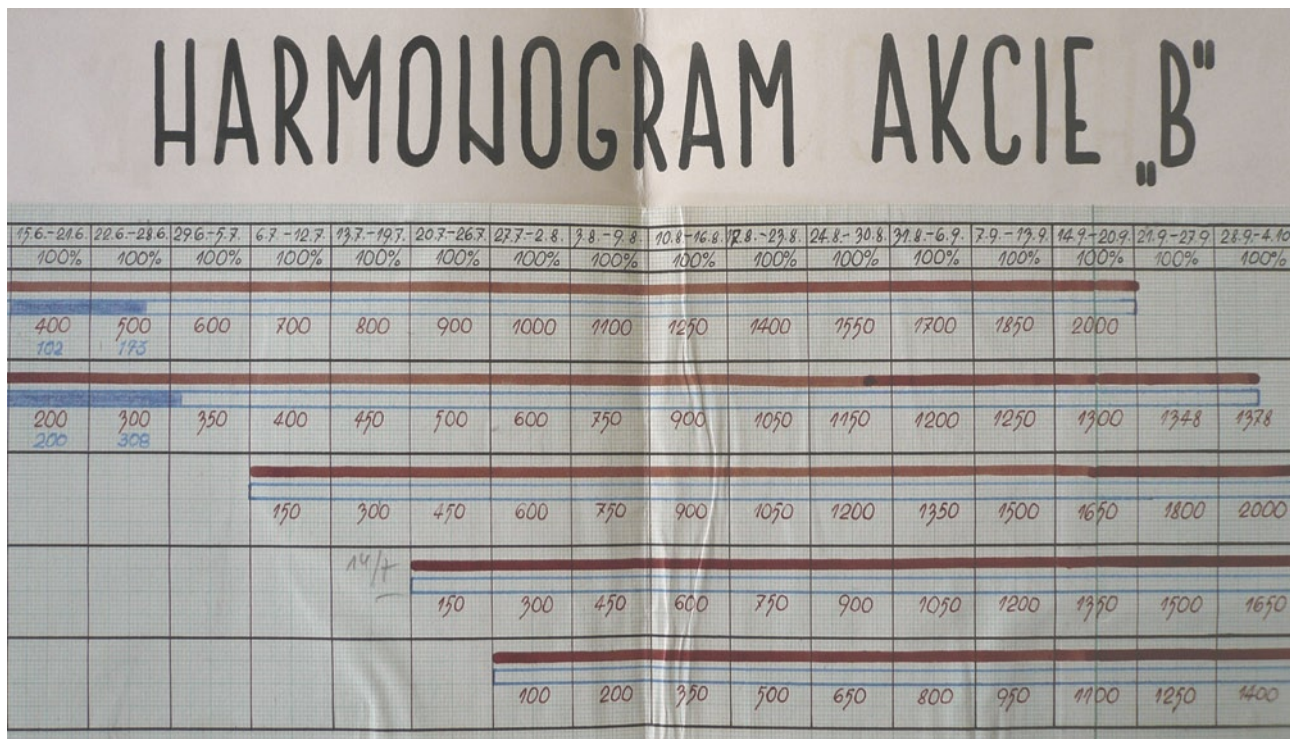 HARMONOGRAM AKCIE „B"
15.6.-21.6. 22.6.-28.6. 29.6.-5.7. 6.7.-12.7. 13.7.-19.7. 20.7.-26.7. 27.7.-2.8. 3.8.-9.8. 10.8.-16.8. 17.8.-23.8. 24.8.-30.8. 31.8.-6.9. 7.9.-13.9. 14.9.-20.9. 21.9.-27.9. 28.9.-4.10
100% 100% 100% 100% 100% 100% 100% 100% 100% 100% 100% 100% 100% 100% 100% 100%
400 500 600 700 800 900 1000 1100 1250 1400 1550 1700 1850 2000
102 193
200 300 350 400 450 500 600 750 900 1050 1150 1200 1250 1300 1348 1378
200 308
150 300 450 600 750 900 1050 1200 1350 1500 1650 1800 2000
14/7
150 300 450 600 750 900 1050 1200 1350 1500 1650
100 200 350 500 650 800 950 1100 1250 1400